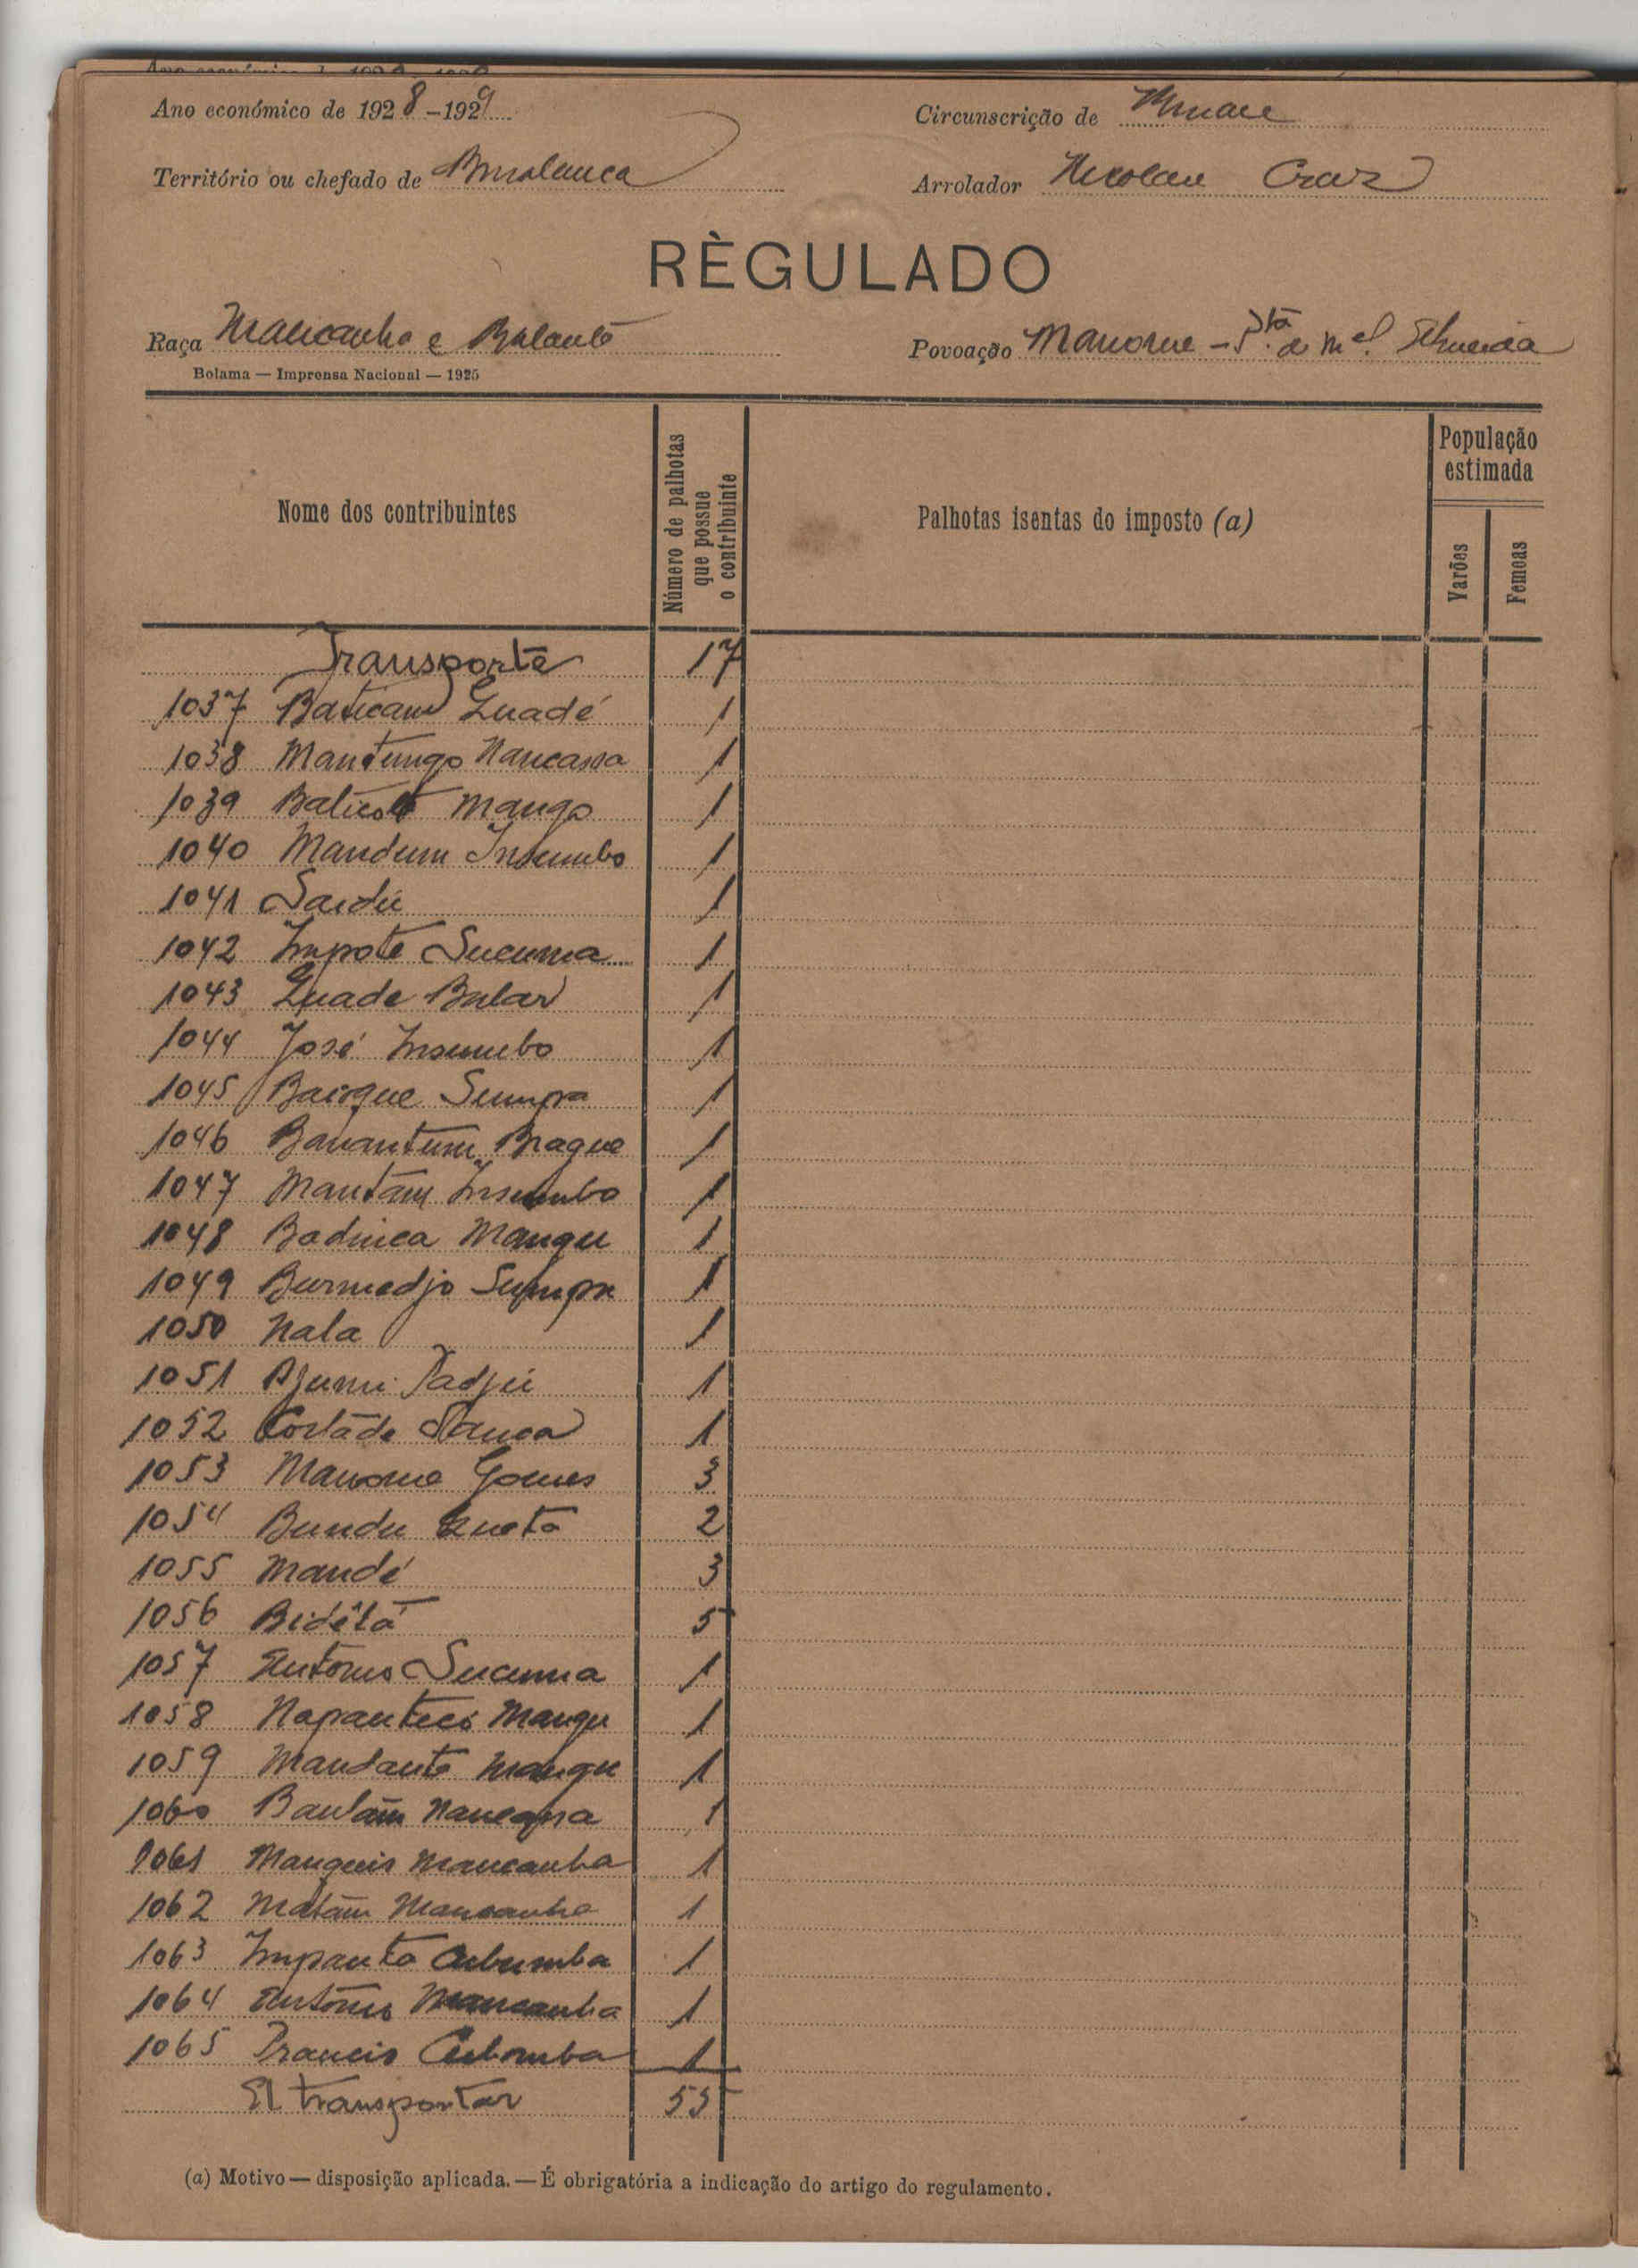 Ano económico de 1928-1929
Circunscrição de
Território ou chefado de
Arrolador Nicolau Cruz
RÈGULADO
Raça Mancanha e Balanta
Povoação Manome - Pta de Mel. Almeida
Bolama — Imprensa Nacional — 1925
Nome dos contribuintes
Número de palhotas que possue o contribuinte
Palhotas isentas do imposto (a)
População estimada
Varões
Femeas
Transporte 17
1037 Baticam Guadé 1
1038 Mantungo Nancassa 1
1039 Mango 1
1040 Mandum Insumbo 1
1041 Saidú 1
1042 Impote Sucuma 1
1043 Guade Bular 1
1044 José Insumbo 1
1045 Bacoque Sumpa 1
1046 Banantum Braque 1
1047 Mantam Insumbo 1
1048 Badinca Mangu 1
1049 Burmedjo Sumpa 1
1050 Nala 1
1051 1
1052 Cortado Sanca 1
1053 Manome Gomes 3
1054 Bundu 2
1055 Mandé 3
1056 Bidêtá 5
1057 António Sucuma 1
1058 Mangu 1
1059 Mandante Mangu 1
1060 Banlam Nancassa 1
1061 Manguis Mancanha 1
1062 Matam Mancanha 1
1063 Impanta Cubumba 1
1064 António Mancanha 1
1065 Francis Cubomba 1
A transportar 55
(a) Motivo — disposição aplicada. — É obrigatória a indicação do artigo do regulamento.